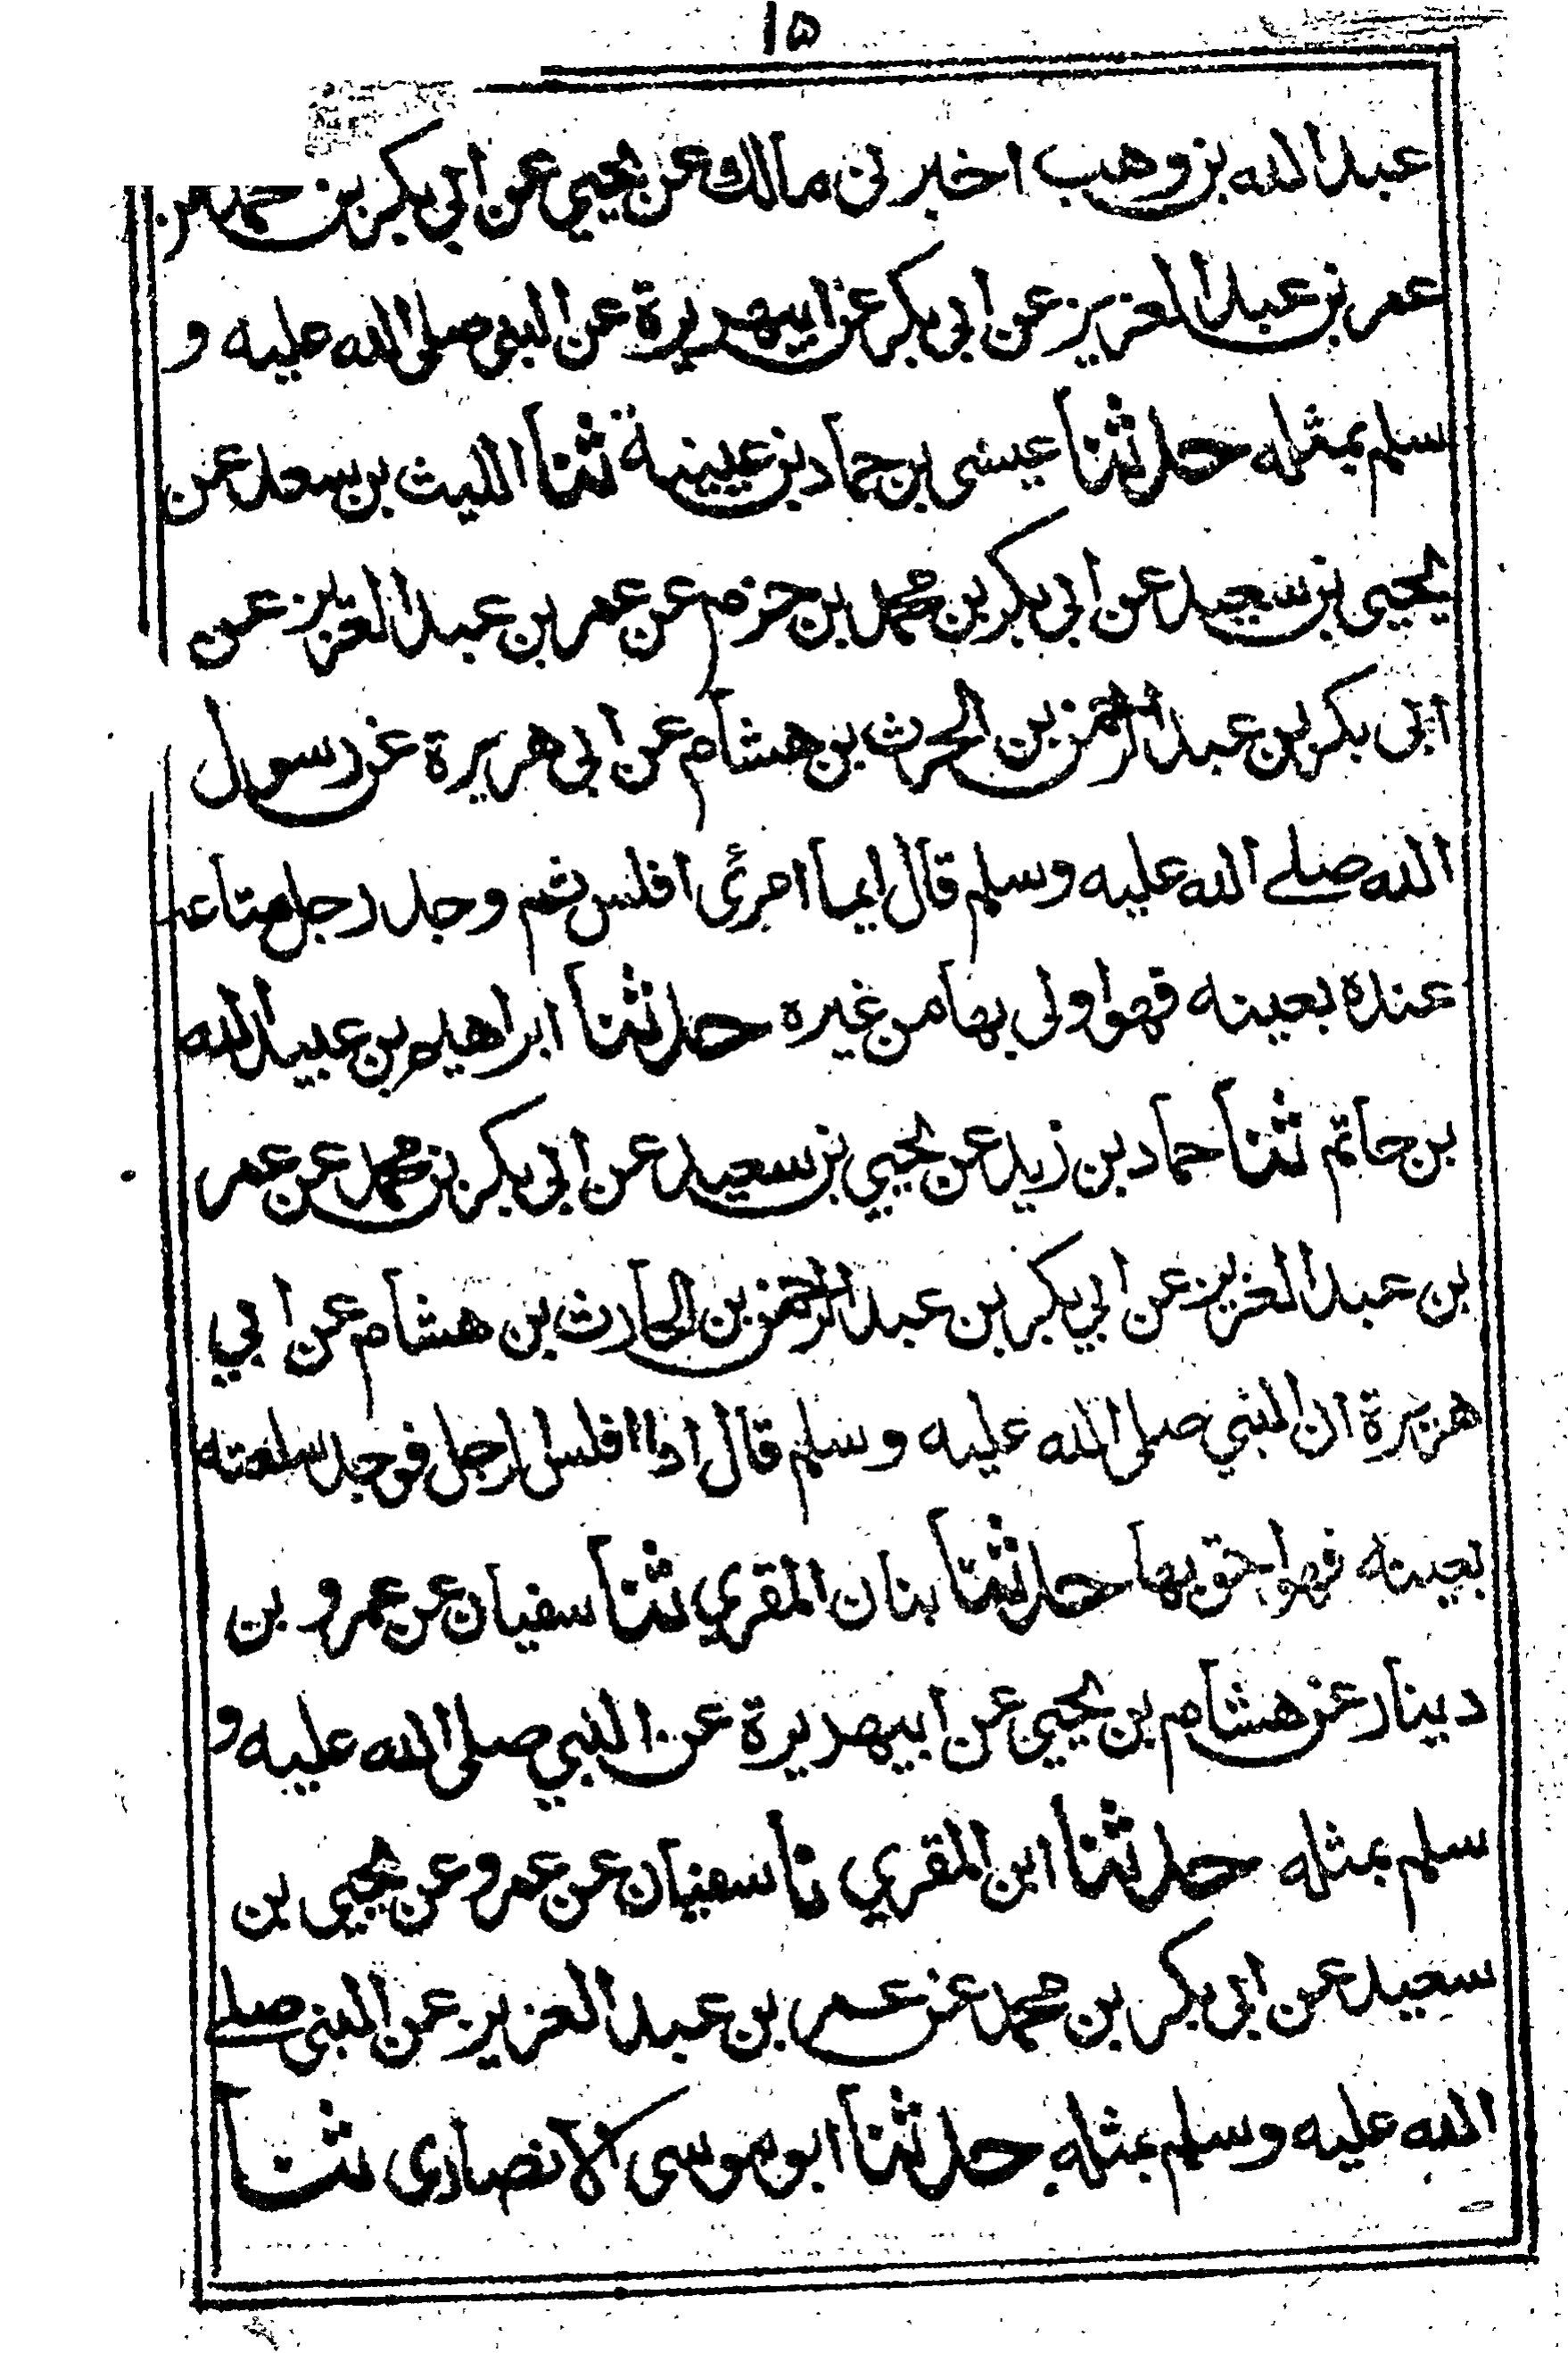 ١٥
عبد الله بن وهب اخبرنى مالك عن يحيى عن ابي بكر بن محمد عن
عمر بن عبد العزيز عن ابي بكر عن ابيهريرة عن النبى صلى الله عليه و
سلم بمثله حدثنا عيسى بن حماد بن عيينة ثنا الليث بن سعد عن
يحيى بن سعيد عن ابي بكر بن محمد بن حزم عن عمر بن عبد العزيز عن
ابى بكر بن عبد الرحمن بن الحرث بن هشام عن ابي هريرة عن رسول
الله صلے الله عليه وسلم قال ايما امرئ افلس ثم وجد رجل متاعه
عنده بعينه فهوا ولى بها من غيره حدثنا ابراهيم بن عبيد الله
بن حاتم ثنا حماد بن زيد عن يحيى بن سعيد عن ابي بكر بن محمد عن عمر
بن عبد العزيز عن ابي بكر بن عبد الرحمن بن الحارث بن هشام عن ابي
هريرة ان النبي صلى الله عليه وسلم قال اذا افلس الرجل فوجد سلعته
بعينه فهوا حق بها حدثنا بنان المقري ثنا سفيان عن عمرو بن
دينار عن هشام بن يحيى عن ابيهريرة عن النبي صلى الله عليه و
سلم بمثله حدثنا ابن المقري نا سفيان عن عمرو عن يحيى بن
سعيد عن ابى بكر بن محمد عن عمر بن عبد العزيز عن النبى صلے
الله عليه وسلم بمثله حدثنا ابو موسى الانصارى ثنا